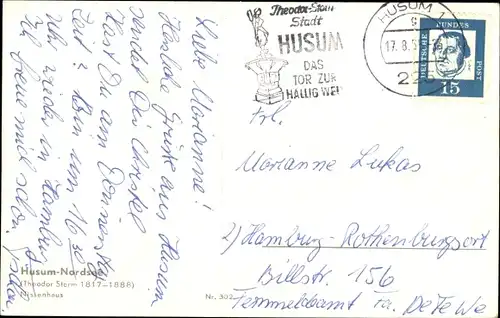 Liebe Marianne!
Herzliche Grüße aus Husum
sendet Dir Christel
Hast Du am Donnerstag
Zeit? Bin um 16³⁰
Uhr wieder in Hamburg
Ich freue mich schon
Husum-Nordsee
(Theodor Storm 1817-1888)
Nr. 302
Theodor-Storm
Stadt
HUSUM
DAS
TOR ZUR
HALLIG WELT
HUSUM
17.8.
DEUTSCHE BUNDES POST
15
Frl.
Marianne Lukas
2) Hamburg-Rothenburgsort
Billstr. 156
Fernmeldeamt Fa. DeTeWe